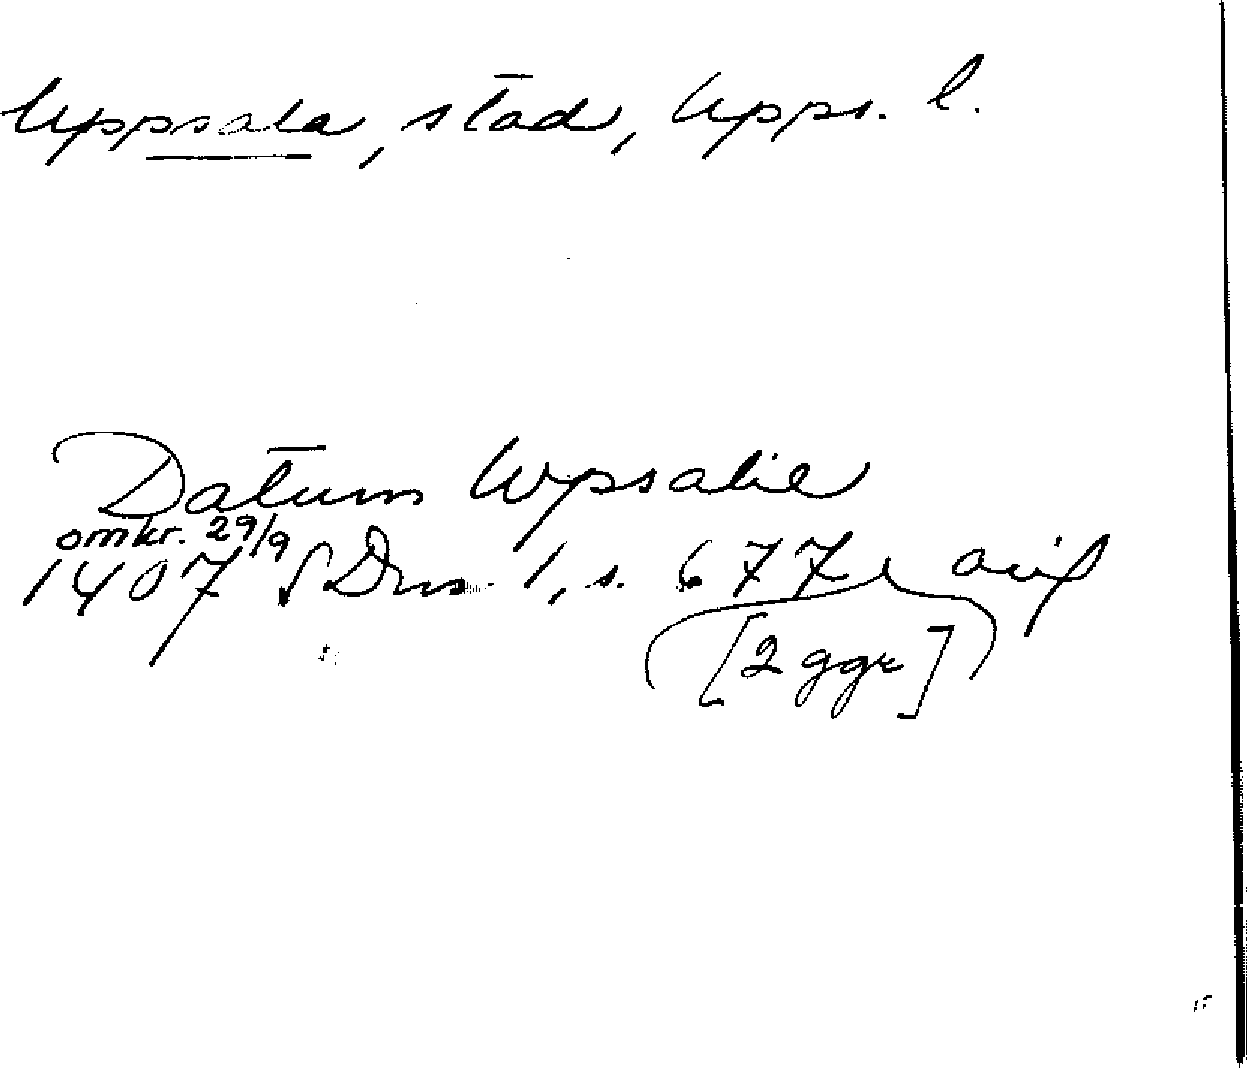 Uppsala, stad, Upps. l.
Datum Wpsalie
omkr. 29/9
1407 SDns 1, s. 677 avs
[2 ggr]